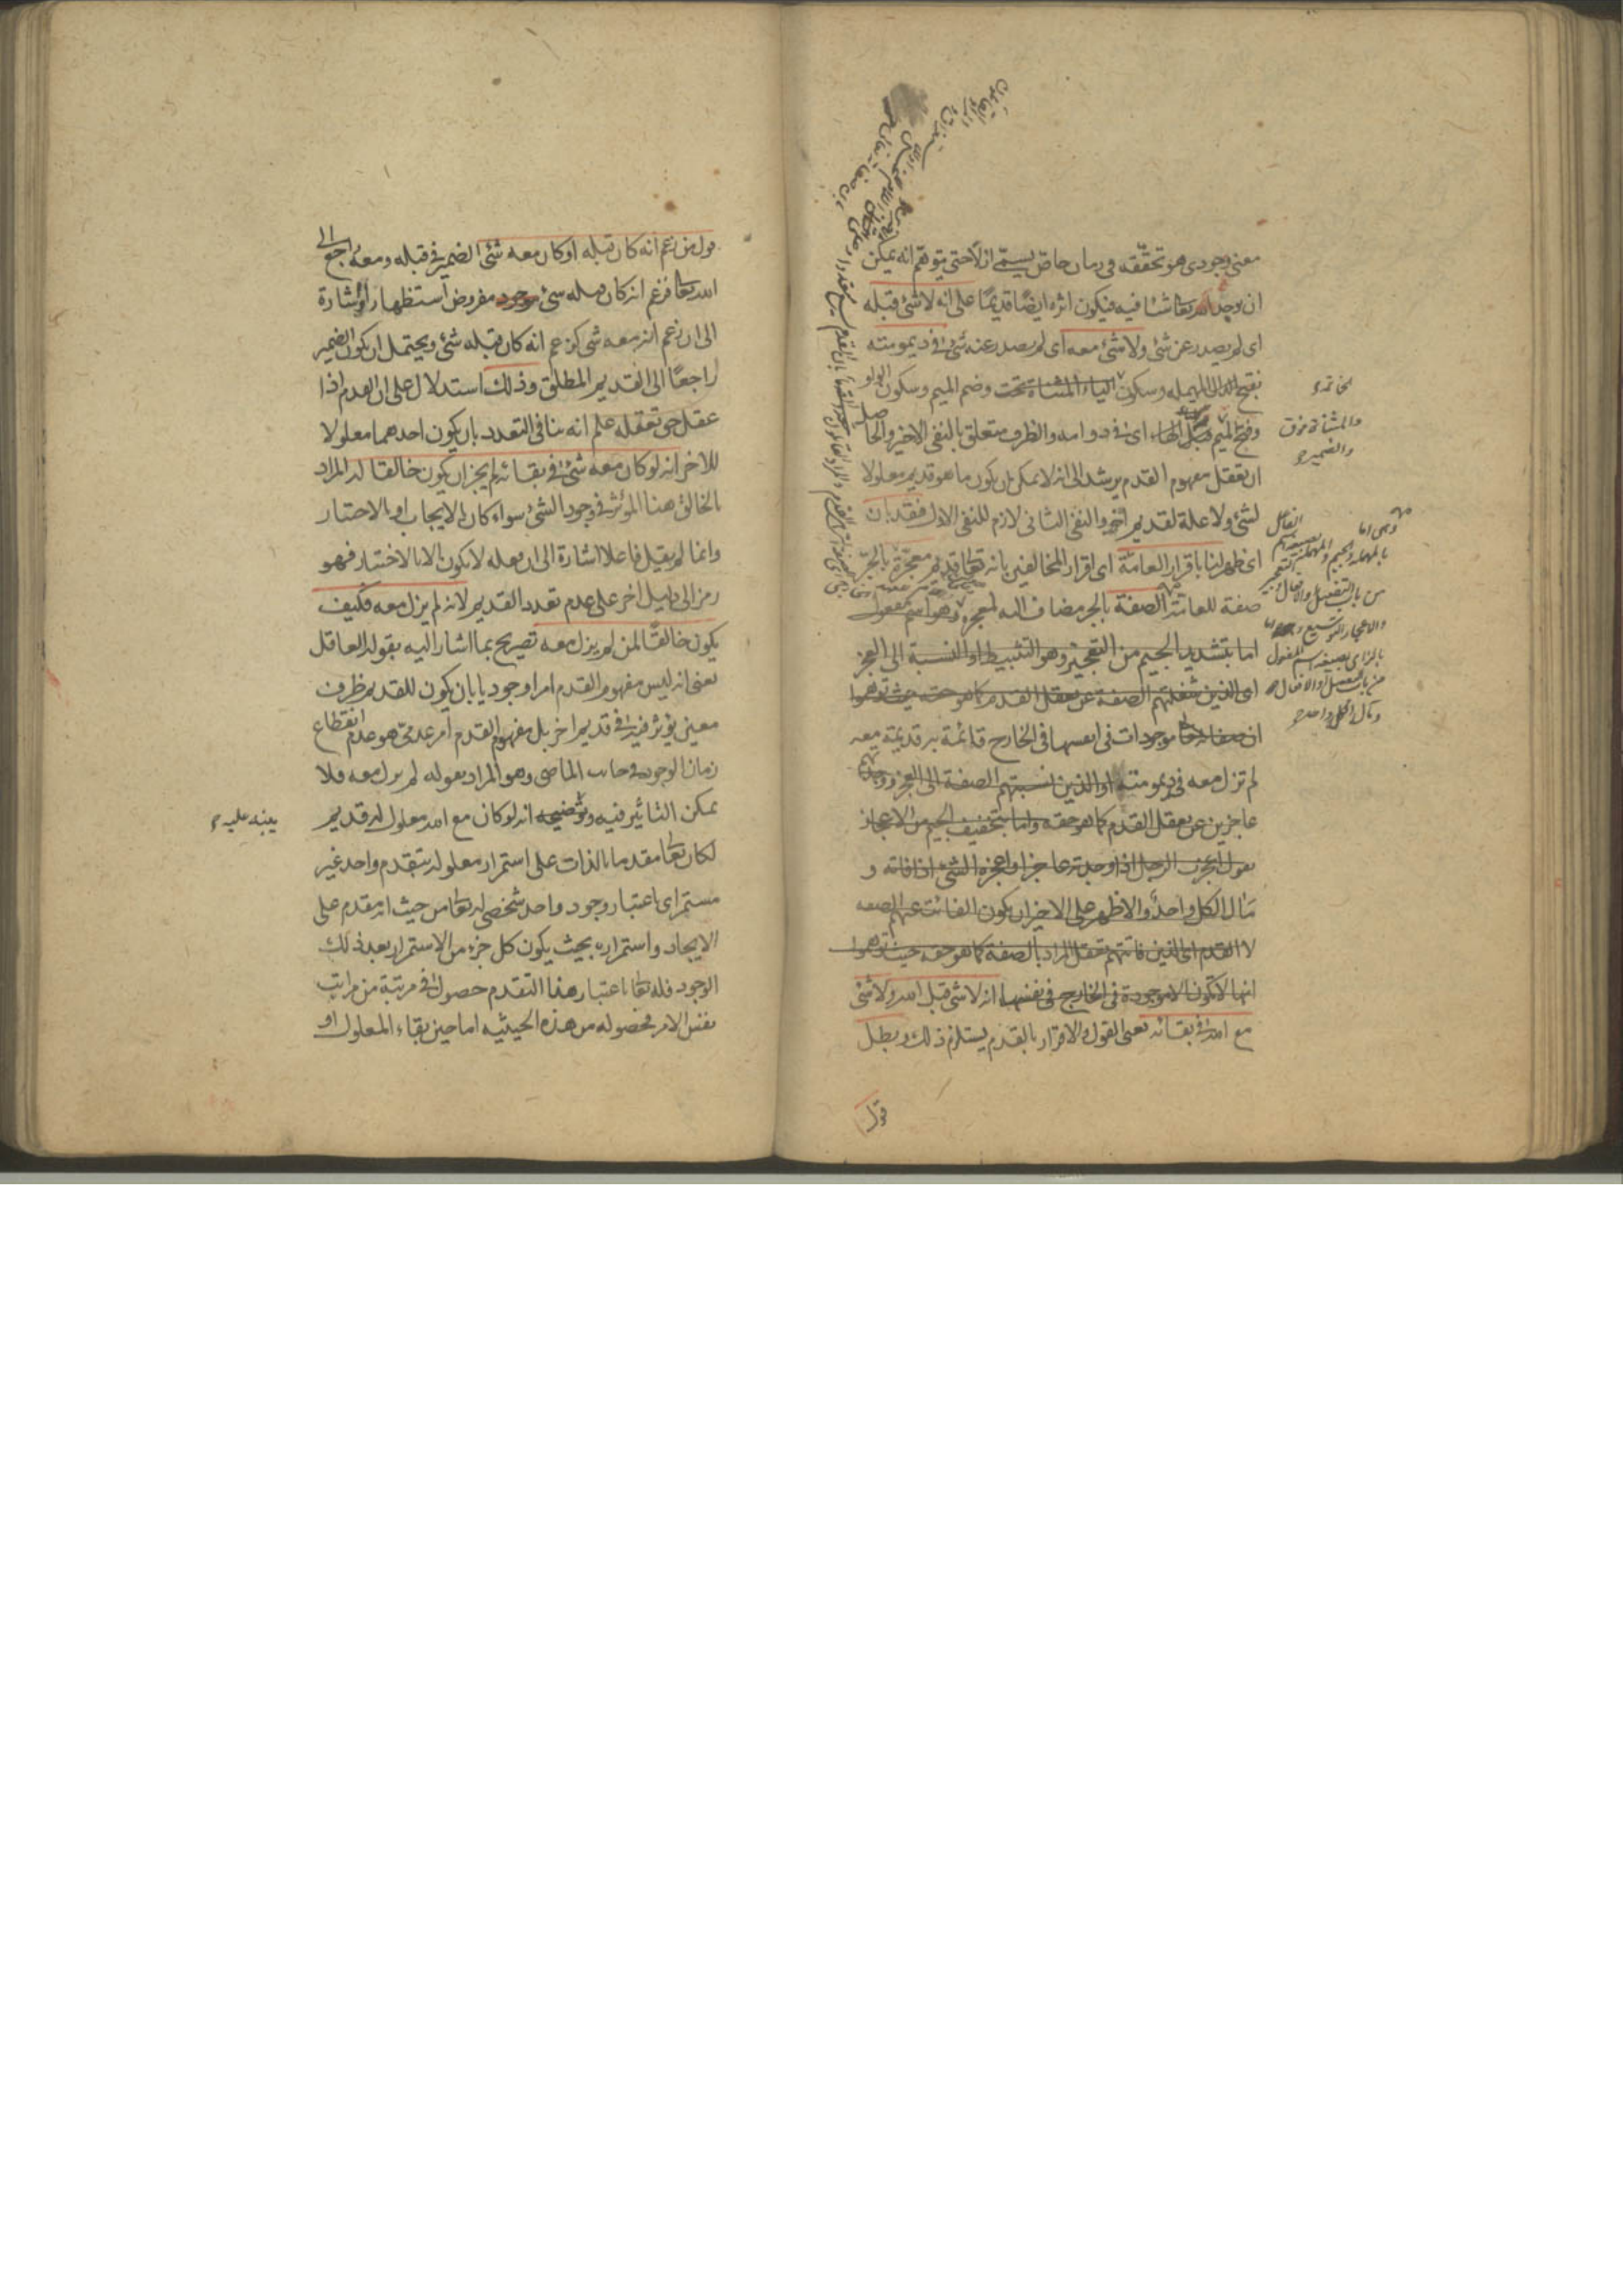 معنى وجودى هو تحققه فى زمان خاص يسمى ازلا حتى يتوهم انه يمكن
ان يوجد الله تعا شيئا فيه فيكون اثره ايضا قديما على انه لا شئ قبله
اى لم يصدر عن شئ ولا شئ معه اى لم يصدر عنه شئ فى ديمومته
بفتح الدال المهمله وسكون الياء المثناة تحت وضم الميم وسكون الواو
وفتح الميم قبل الهاء اى فى دوامه والظرف متعلق بالنفى الاخير والحاصل
ان تعقل مفهوم القدم يرشد الى انه لا يمكن ان يكون ما هو قديم معلولا
لشئ ولا علة لقديم اخر والنفى الثانى لازم للنفى الاول فقد بان
اى ظهر لنا باقرار العامة اى اقرار المخالفين بانه تعا قديم معجزة بالجر
صفة للعامة الصفة بالجر مضاف اليه لمعجزه وهو اسم مفعول
اما بتشديد الجيم من التعجيز وهو التثبيط او النسبة الى العجز
اى الذين شغلتهم الصفة عن تعقل القدم كما هو حقه حيث توهموا
ان صفاته تعا موجودات فى انفسها فى الخارج قائمة به قديمة معه
لم تزل معه فى ديمومته او الذين نسبتهم الصفة الى العجز ووجدتهم
عاجزين عن تعقل القدم كما هو حقه واما بتخفيف الجيم من الاعجاز
يقول اعجزت الرجل اذا وجدته عاجزا واعجزه الشئ اذا فاته و
مال الكل واحد والاظهر على الاخير ان يكون الفائت عنهم الصفه
لا القدم اى الذين فاتتهم تعقل المراد بالصفة كما هو حقه حيث توهموا
انها لا تكون الا موجودة فى الخارج فى نفسها انه لا شئ قبل الله ولا شئ
مع الله فى بقائه يعنى القول والاقرار بالقدم يستلزم ذلك وبطل
قول
والمثناة فوق
والضمير
وهى اما
بالمهمله والجيم
من باب التفعيل والافعال
بالزاى بصيغه اسم المفعول
من باب التفعيل او الافعال
ومال الكل واحد
قول من زعم انه كان قبله او كان معه شئ الضمير فى قبله ومعه راجع الى
الله تعا فزعم انه كان قبله شئ موجود مفروض استظهارا واشارة
الى ان زعم انه معه شئ كزعم انه كان قبله شئ ويحتمل ان يكون الضمير
راجعا الى القديم المطلق وذلك استدلال على ان القدم اذا
عقل حق تعقله علم انه ينافى التعدد بان يكون احدهما معلولا
للاخر انه لو كان معه شئ فى بقائه لم يجز ان يكون خالقا له المراد
بالخالق هنا المؤثر فى وجود الشئ سواء كان بالايجاب او بالاختيار
وانما لم يقل فاعلا اشارة الى ان فعله لا يكون الا بالاختيار فهو
رمز الى دليل اخر على عدم تعدد القديم لانه لم يزل معه فكيف
يكون خالقا لمن لم يزل معه تصريح بما اشار اليه بقوله العاقل
يعنى انه ليس مفهوم القدم امرا وجوديا بان يكون للقديم ظرف
معين يؤثر فيه فى قديم اخر بل مفهوم القدم امر عدمى هو عدم انقطاع
زمان الوجود فى جانب الماضى وهو المراد بقوله لم يزل معه فلا
يمكن التاثير فيه وتوضيحه انه لو كان مع الله معلول له قديم
ينبه عليه
لكان تعا مقدما بالذات على استمرار معلوله بتقدم واحد غير
مستمر اى باعتبار وجود واحد شخصى له تعا من حيث انه مقدم على
الايجاد واستمراره بحيث يكون كل جزء من الاستمرار بعد ذلك
الوجود فله تعا باعتبار هذا التقدم حصول فى مرتبة من مراتب
نفس الامر فحصوله من هذه الحيثيه اما حين بقاء المعلول او